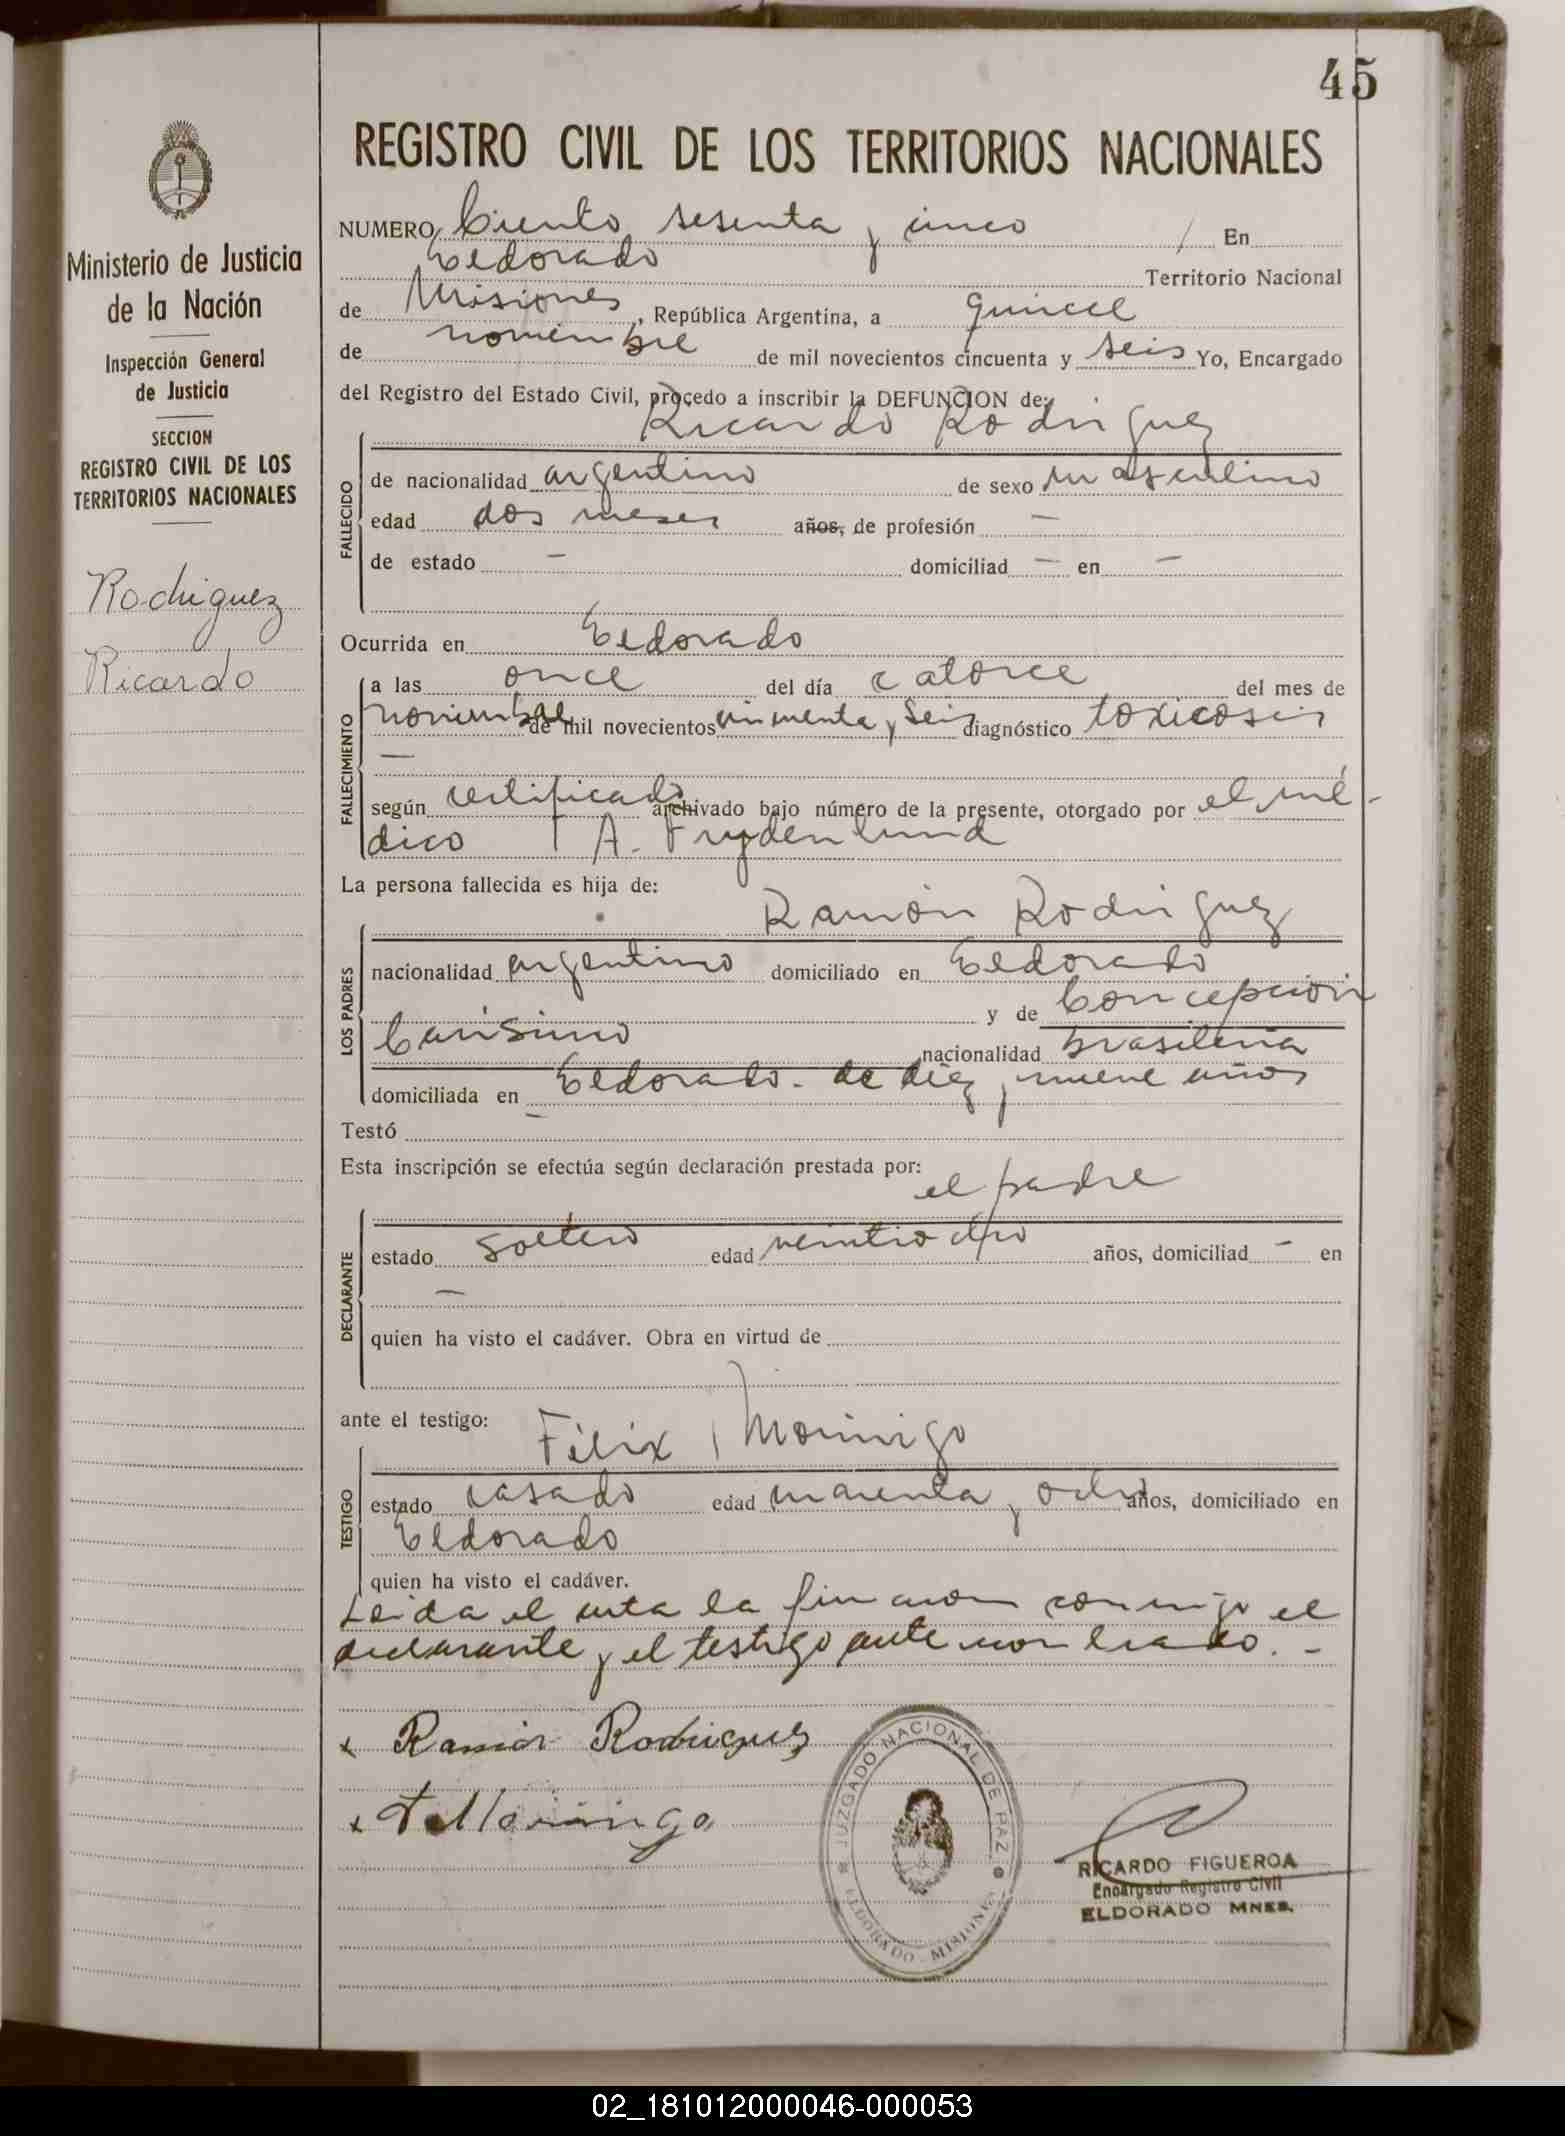 45
REGISTRO CIVIL DE LOS TERRITORIOS NACIONALES
Ministerio de Justicia
de la Nación
Inspección General
de Justicia
SECCION
REGISTRO CIVIL DE LOS
TERRITORIOS NACIONALES
Rodriguez
Ricardo
NUMERO Ciento sesenta y cinco / En
Eldorado Territorio Nacional
de Misiones, República Argentina, a quince
de noviembre de mil novecientos cincuenta y seis Yo, Encargado
del Registro del Estado Civil, procedo a inscribir la DEFUNCION de:
Ricardo Rodriguez
FALLECIDO
de nacionalidad argentino de sexo masculino
edad dos meses años, de profesión —
de estado — domiciliad — en —
Ocurrida en Eldorado
FALLECIMIENTO
a las once del día catorce del mes de
noviembre de mil novecientos cincuenta y seis diagnóstico toxicosis
—
según certificado archivado bajo número de la presente, otorgado por el mé-
dico A. Frydenlund
La persona fallecida es hija de:
Ramón Rodriguez
LOS PADRES
nacionalidad argentino domiciliado en Eldorado
y de Concepción
Carísimo nacionalidad brasileña
domiciliada en Eldorado. de diez y nueve años
Testó —
Esta inscripción se efectúa según declaración prestada por:
el padre
DECLARANTE
estado soltero edad veintiocho años, domiciliad — en
—
quien ha visto el cadáver. Obra en virtud de
ante el testigo:
Félix Moringo
TESTIGO
estado casado edad cuarenta y ocho años, domiciliado en
Eldorado
quien ha visto el cadáver.
Leida el acta la firmaron conmigo el
declarante y el testigo ante nombrado. -
x Ramón Rodriguez
x
JUZGADO NACIONAL DE PAZ
ELDORADO - MISIONES
RICARDO FIGUEROA
Encargado Registro Civil
ELDORADO MNES.
02_181012000046-000053